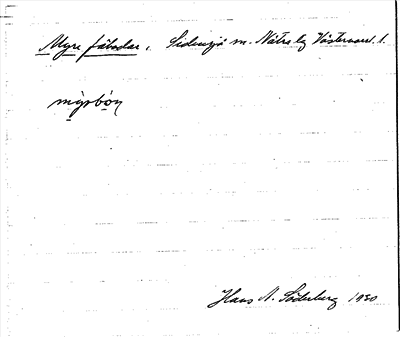 Myre fäbodar, Sidensjö sn. Nätra lg Västernorrl. l.
myrbon
Hans N. Söderberg 1930